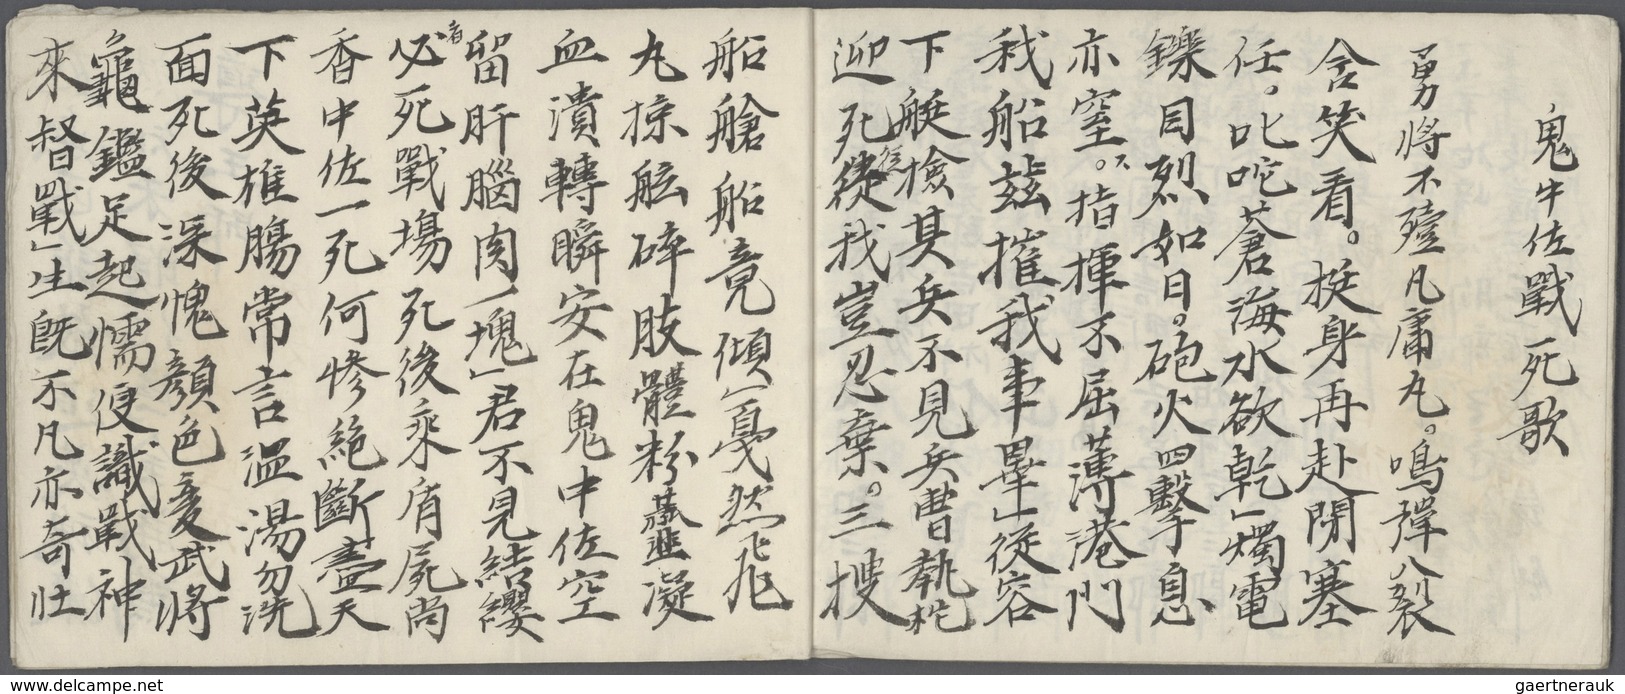 鬼中佐戰死歌
勇將不殪凡庸丸。鳴彈八裂
含笑看。挺身再赴閉塞
任。叱咤蒼海水欲乾」燭電
鑠目烈如日。砲火四擊息
亦窒。指揮不屈薄港門
我船玆摧我事畢」從容
下艇檢其兵不見兵曹執
迎死從我豈忍棄。三搜
船艙船竟傾」戛然飛
丸掠舷碎肢體粉韲凝
血潰轉瞬安在鬼中佐空
留肝腦肉一塊」君不見結纓
必死戰場死後乘盾屍尚
者
香中佐一死何慘絕斷盡天
下英雄腸常言溫湯勿洗
面死後深愧顏色憂武將
龜鑑足起懦便識戰神
來督戰」生既不凡亦奇壯
gaertnerauk